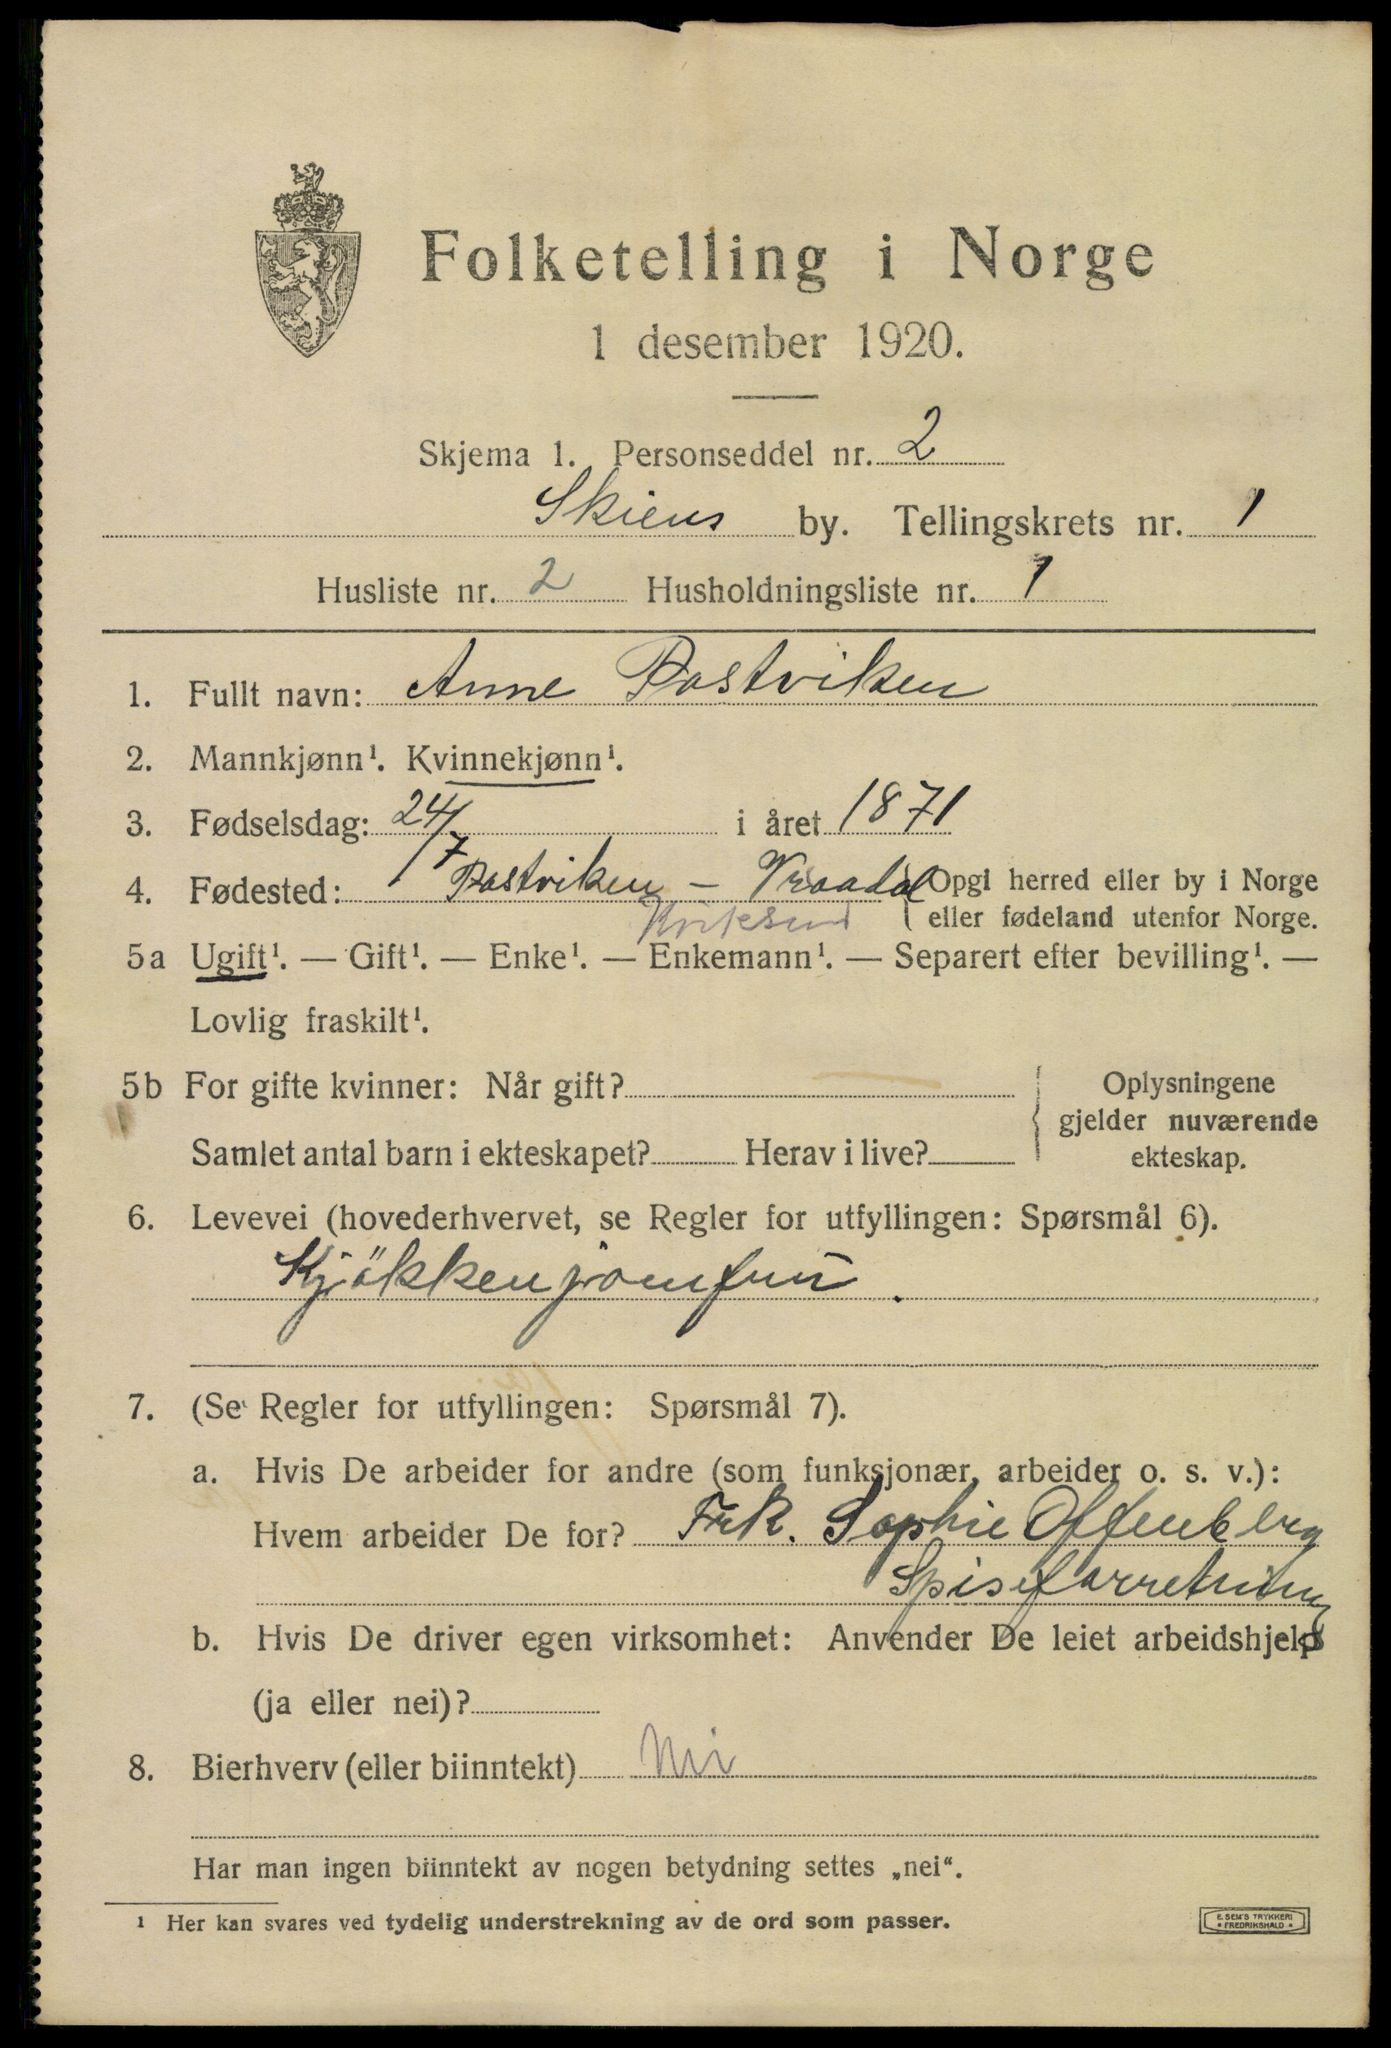 Folketelling i Norge
1 desember 1920.
Skjema 1. Personseddel nr. 2
Skiens by. Tellingskrets nr. 1
Husliste nr. 2 Husholdningsliste nr. 1
1. Fullt navn: Anne Rostviken
2. Mannkjønn¹. Kvinnekjønn¹.
3. Fødselsdag: 24/7 i året 1871
4. Fødested: Rostviken – Vraadal { Opgi herred eller by i Norge
eller fødeland utenfor Norge.
5a Ugift¹. — Gift¹. — Enke¹. — Enkemann¹. — Separert efter bevilling¹. —
Lovlig fraskilt¹.
5b For gifte kvinner: Når gift? — { Oplysningene
gjelder nuværende
Samlet antal barn i ekteskapet? Herav i live? ekteskap.
6. Levevei (hovederhvervet, se Regler for utfyllingen: Spørsmål 6).
Kjökkenjomfru.
7. (Se Regler for utfyllingen: Spørsmål 7).
a. Hvis De arbeider for andre (som funksjonær, arbeider o. s. v.):
Hvem arbeider De for? Frk. Sophie Offenberg
Spiseforretning
b. Hvis De driver egen virksomhet: Anvender De leiet arbeidshjelp
(ja eller nei)?
8. Bierhverv (eller biinntekt) Nei
Har man ingen biinntekt av nogen betydning settes „nei“.
¹ Her kan svares ved tydelig understrekning av de ord som passer.
E. SEM'S TRYKKERI
* FREDRIKSHALD *